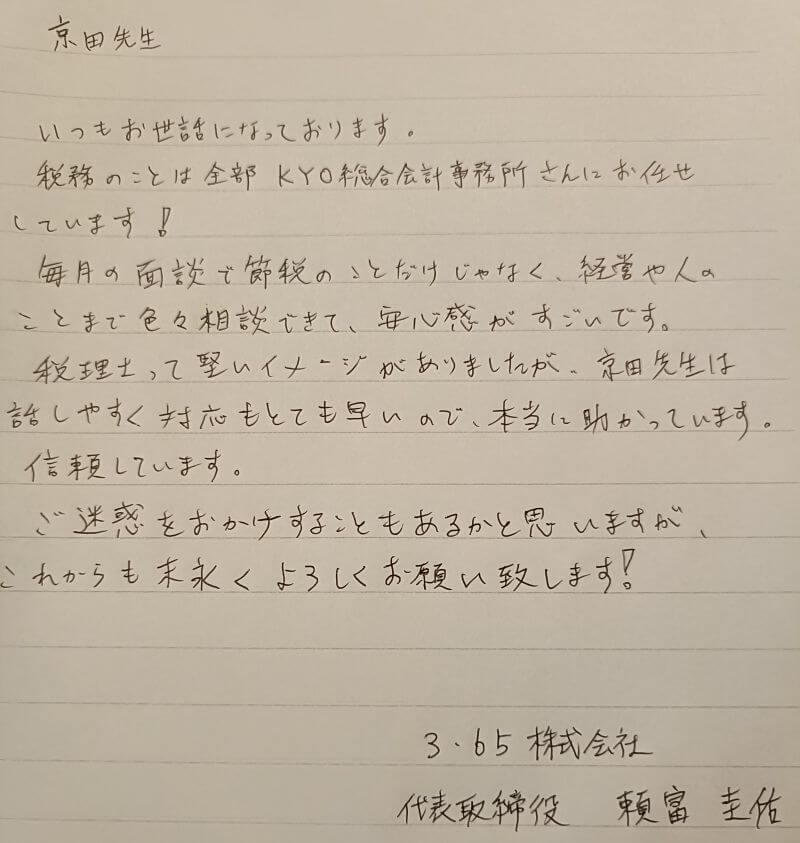 京田先生
いつもお世話になっております。
税務のことは全部 KYO総合会計事務所さんにお任せ
しています!
毎月の面談で節税のことだけじゃなく、経営や人の
ことまで色々相談できて、安心感がすごいです。
税理士って堅いイメージがありましたが、京田先生は
話しやすく対応もとても早いので、本当に助かっています。
信頼しています。
ご迷惑をおかけすることもあるかと思いますが、
これからも末永くよろしくお願い致します!
3・65株式会社
代表取締役 頼富 圭佑